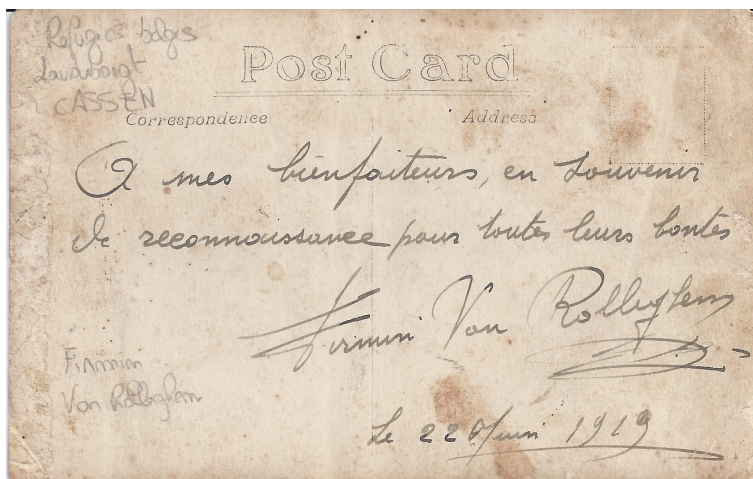 Réfugiés belges
CASSEN
Post Card
Correspondence
Address
A mes bienfaiteurs, en souvenir
de reconnaissance pour toutes leurs bontés
Firmin Van Rolleghem
Firmin
Van Rolleghem
Le 22 Juin 1919